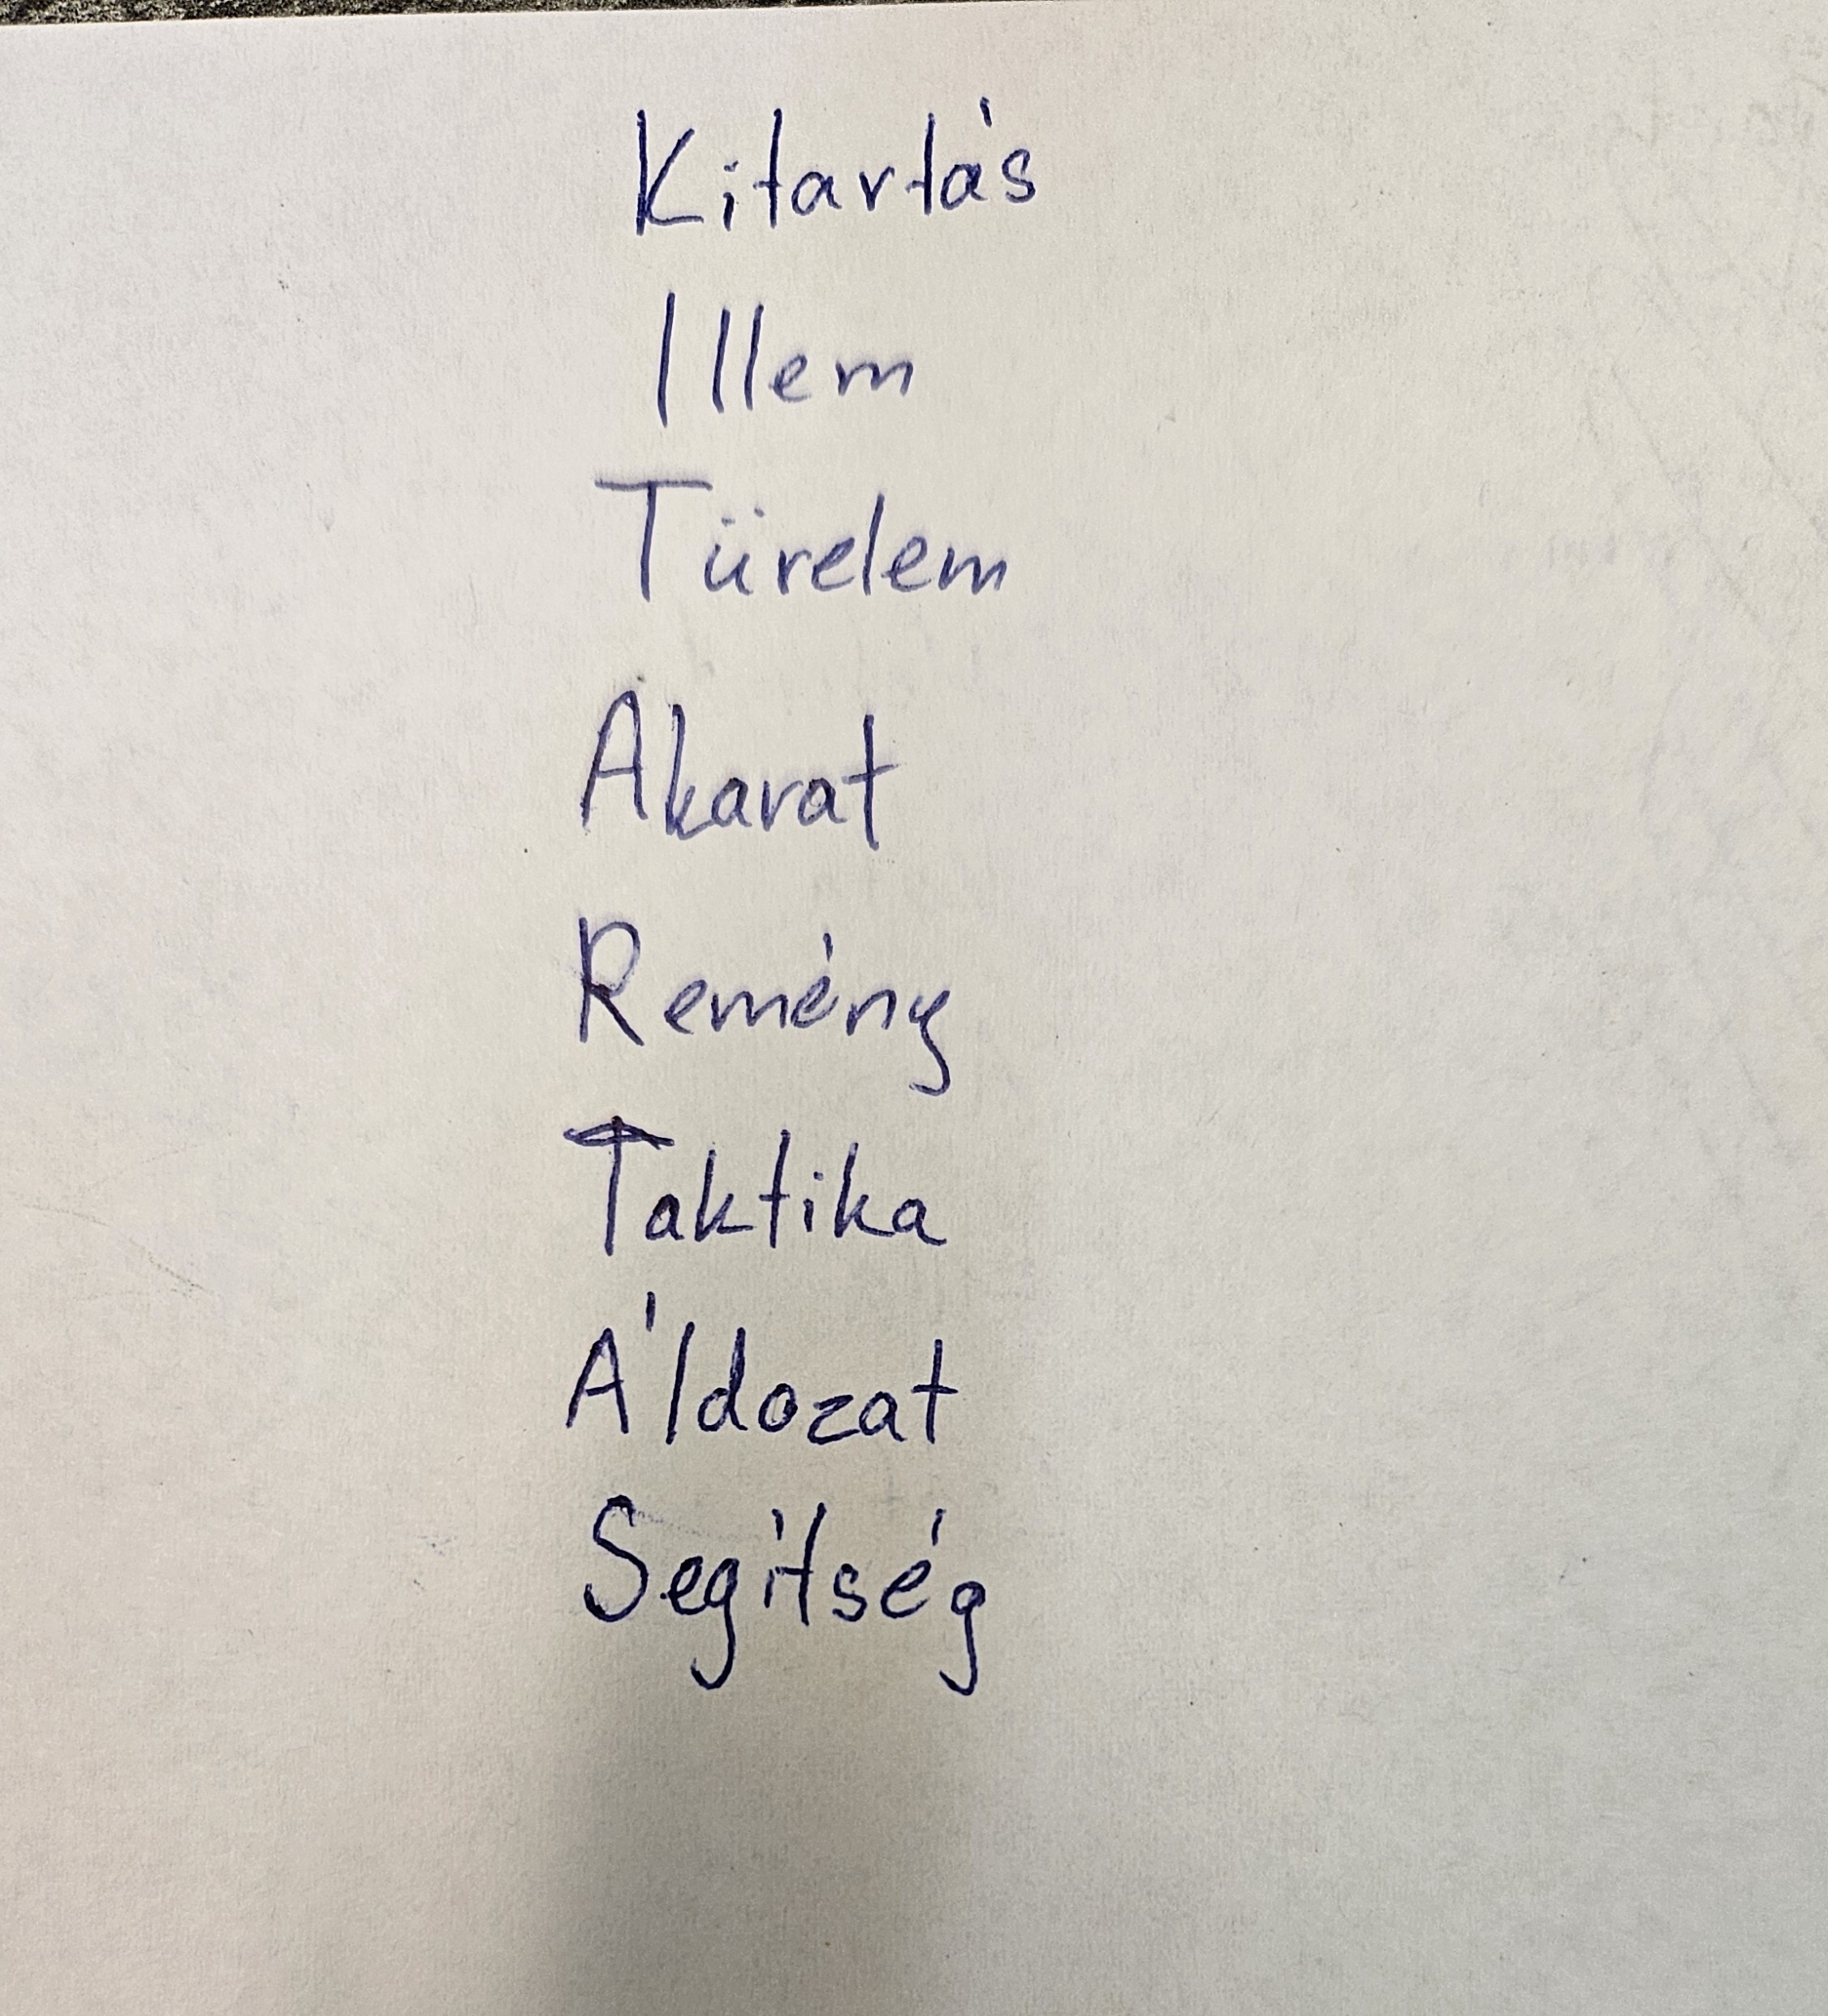 Kitartás
Illem
Türelem
Akarat
Remény
Taktika
Áldozat
Segítség